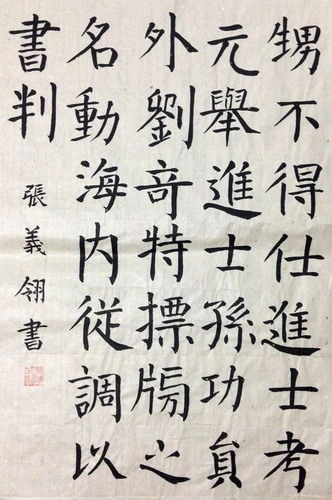 甥不得仕進士考
元舉進士孫功員
外劉竒特摽牓之
名動海内從調以
書判
張義翎書